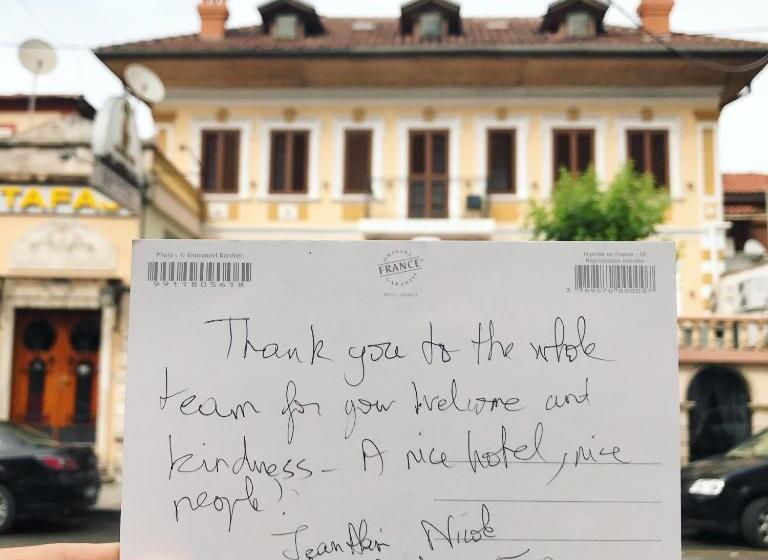 TAFAJ
Photo : © Emmanuel Berthier.
9911805618
ORIGINE
FRANCE
GARANTIE
Imprimé en France - 10
Reproduction interdite
Thank you to the whole
team for your welcome and
kindness - A nice hotel, nice
people!
Nicole